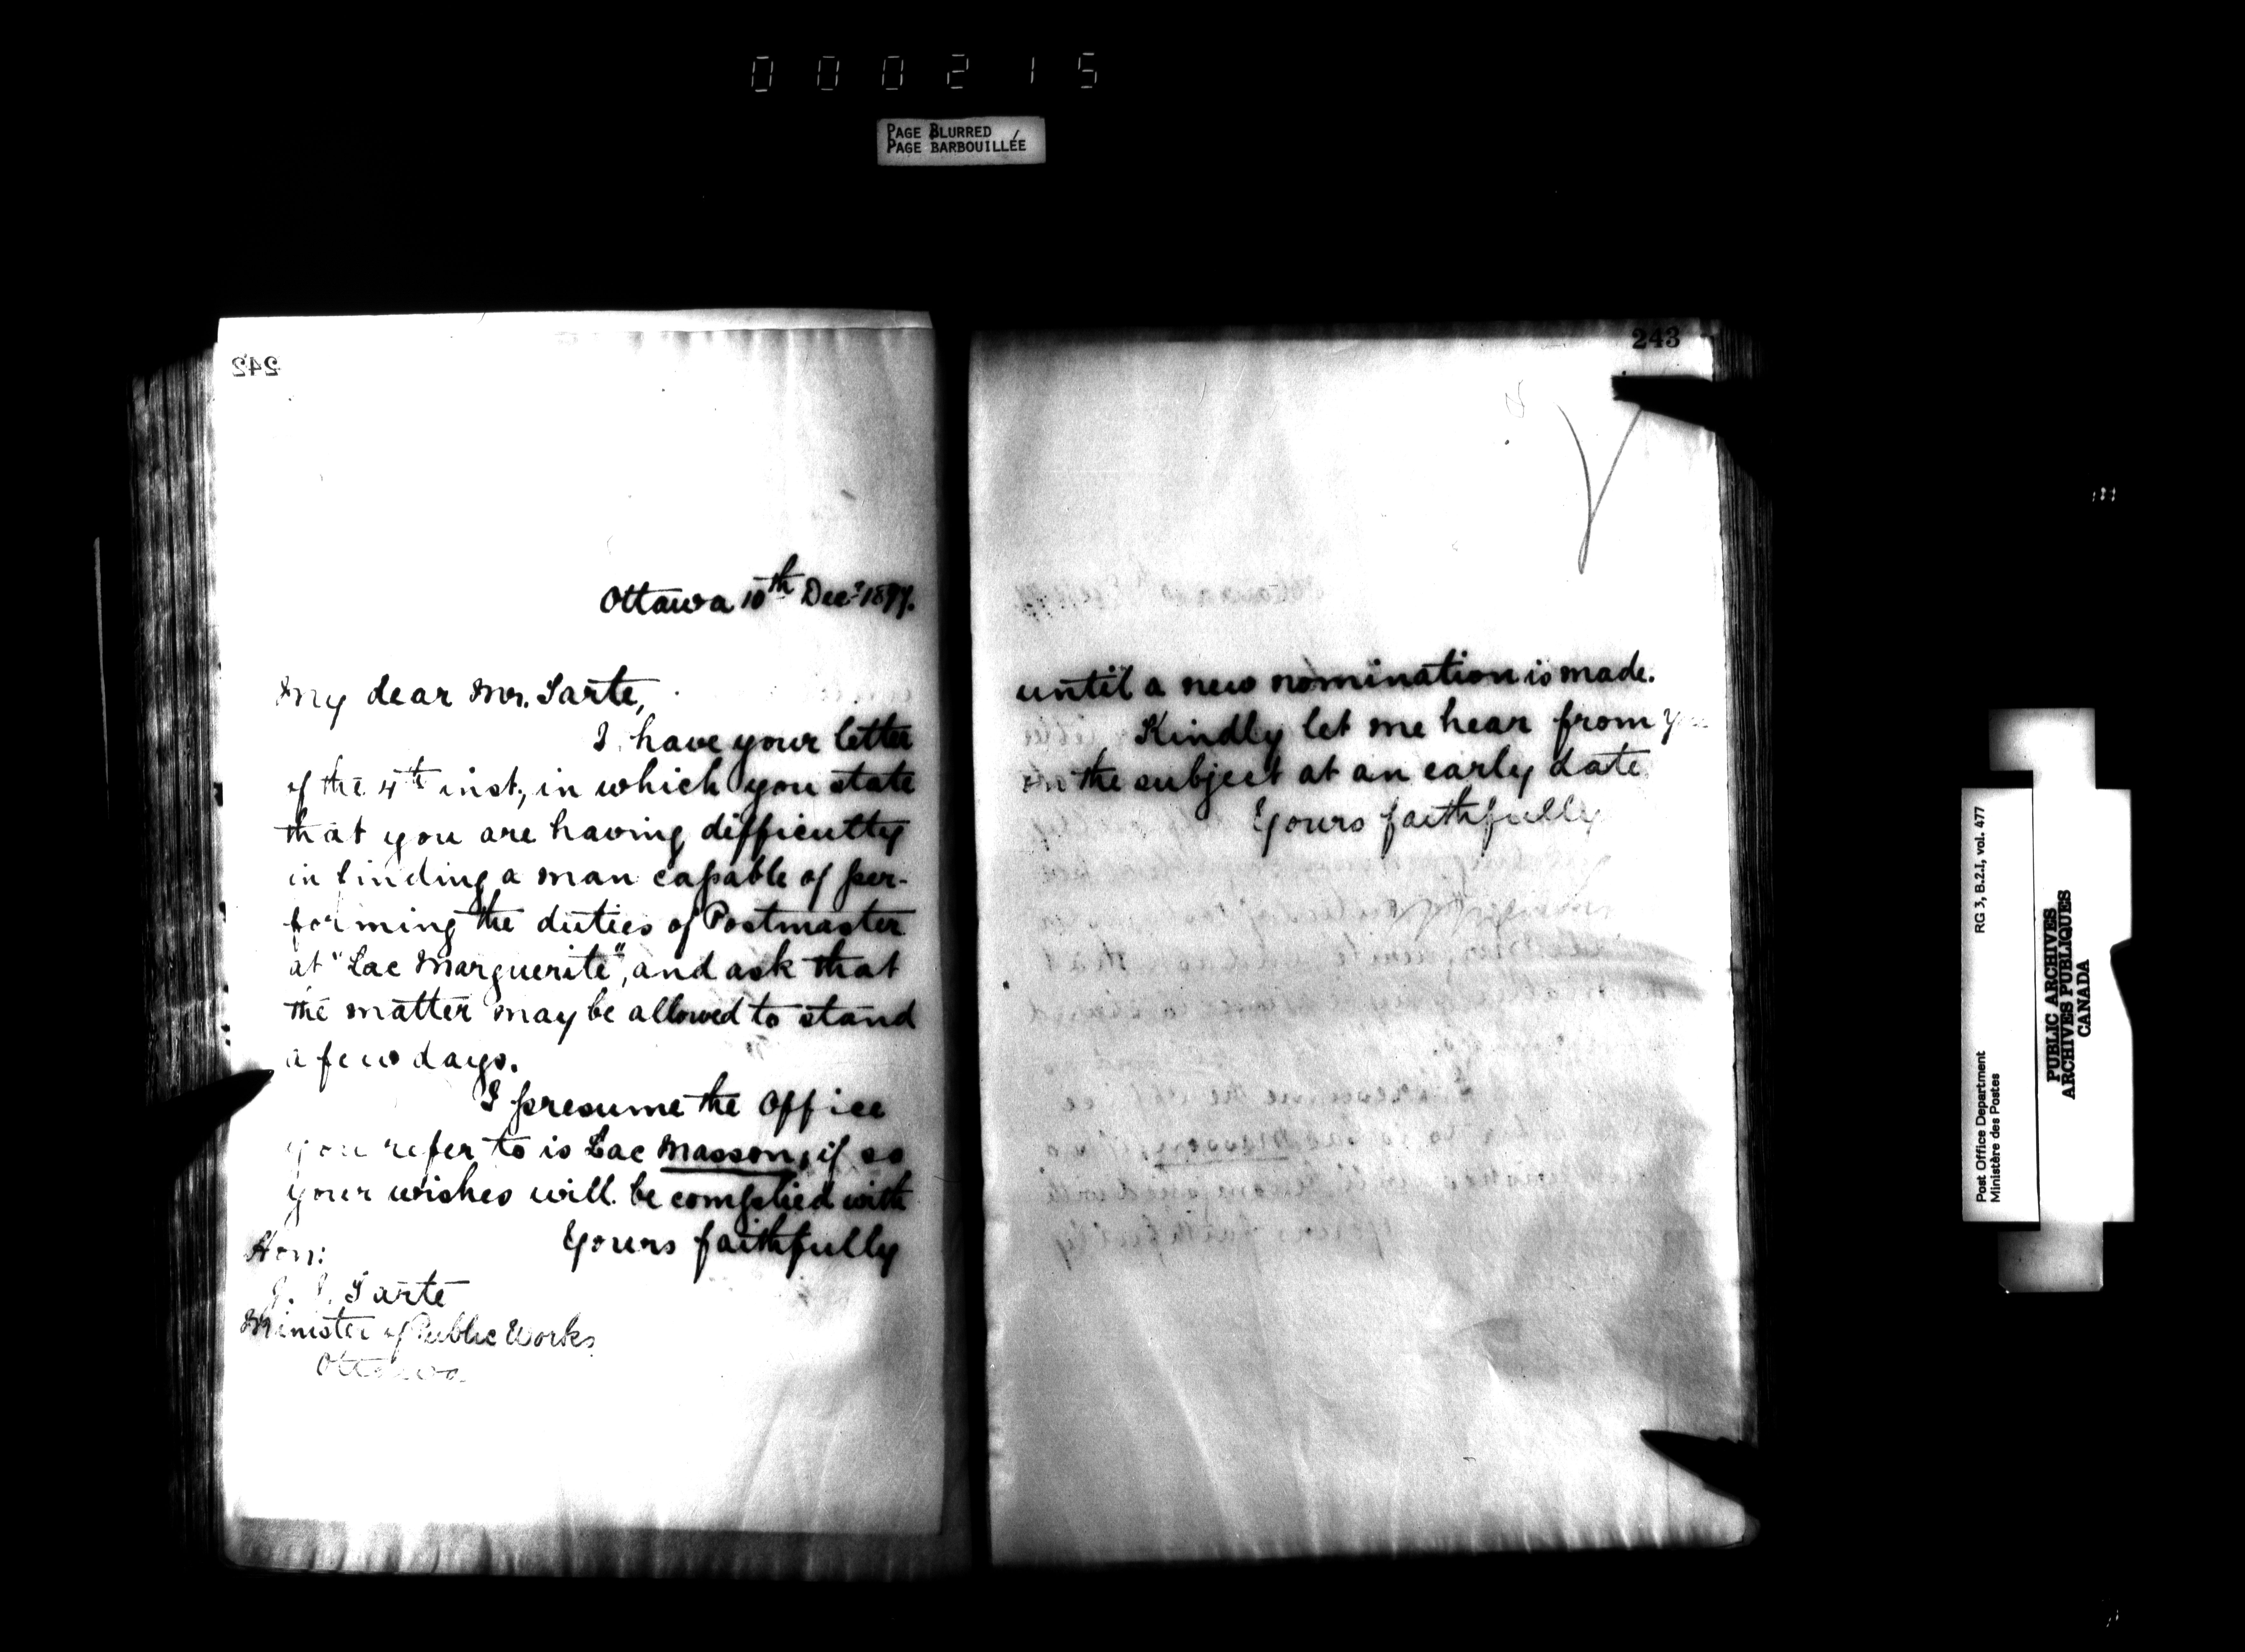 000215
PAGE BLURRED
PAGE BARBOUILLÉE
242
Ottawa 10th Decr 1897.
My dear Mr. Tarte,
I have your letter
of the 4th inst., in which you state
that you are having difficulty
in finding a man capable of per-
forming the duties of Postmaster
at "Lac Marguerite", and ask that
the matter may be allowed to stand
a few days.
I presume the Office
you refer to is Lac Masson, if so
your wishes will be complied with
Yours faithfully
Hon:
J. I. Tarte
Minister of Public Works
Ottawa
243
until a new nomination is made.
Kindly let me hear from you
on the subject at an early date
Yours faithfully
RG 3, B.2.I, vol. 477
Post Office Department
Ministère des Postes
PUBLIC ARCHIVES
ARCHIVES PUBLIQUES
CANADA